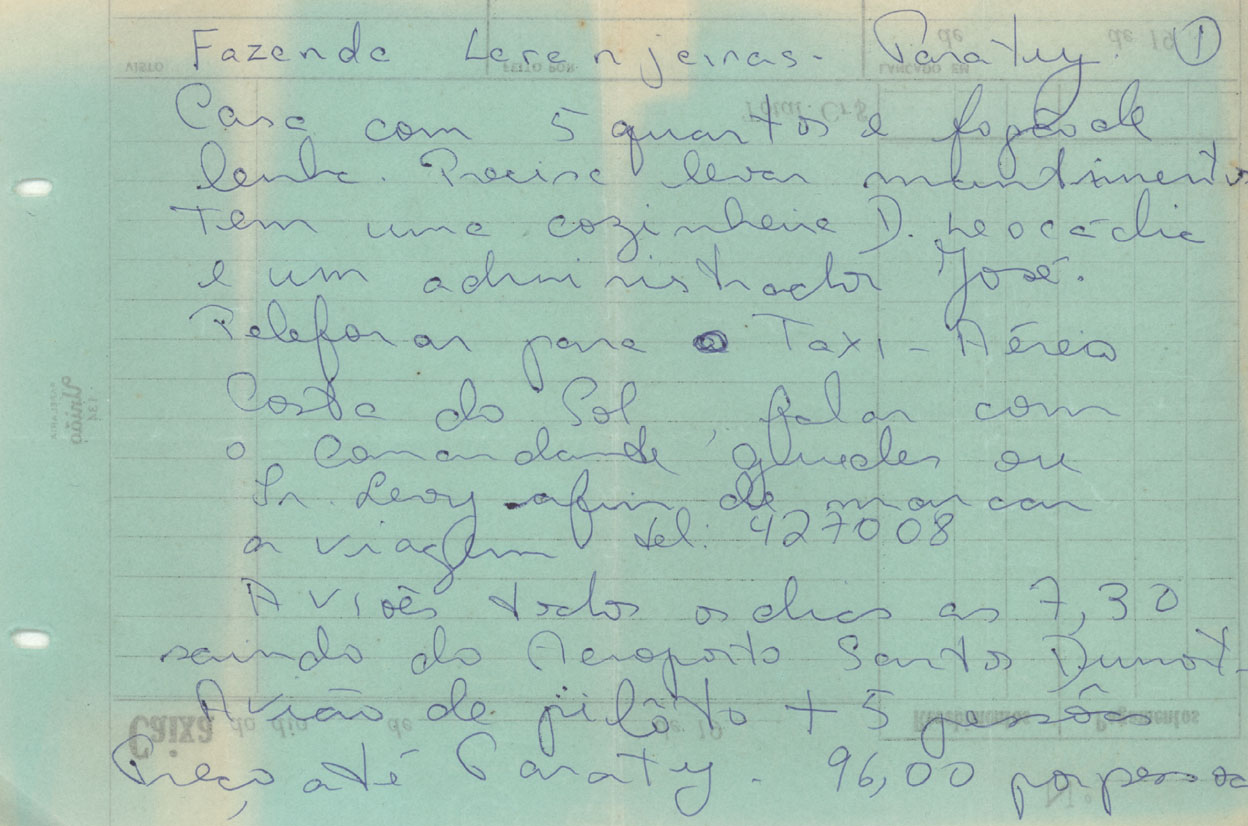 Fazenda Laranjeiras - Paraty. 1
Casa com 5 quartos e fogão de
lenha. Precisa levar mantimentos
Tem uma cozinheira D. Leocádia
e um administrador José.
Telefonar para o Taxi-Aéreo
Costa do Sol, falar com
o Comandante ou
Sr. Levy afim de marcar
a viagem tel: 427008
Aviões todos os dias as 7,30
saindo do Aeroporto Santos Dumont-
Avião de pilôto + 5 pessôas
Preço até Paraty - 96,00 por pessoa
VISTO
FEITO POR
LANÇADO EM
de
de 19
Total Cr$
União
Caixa do dia de de 19
Recebimentos
Pagamentos
Nº